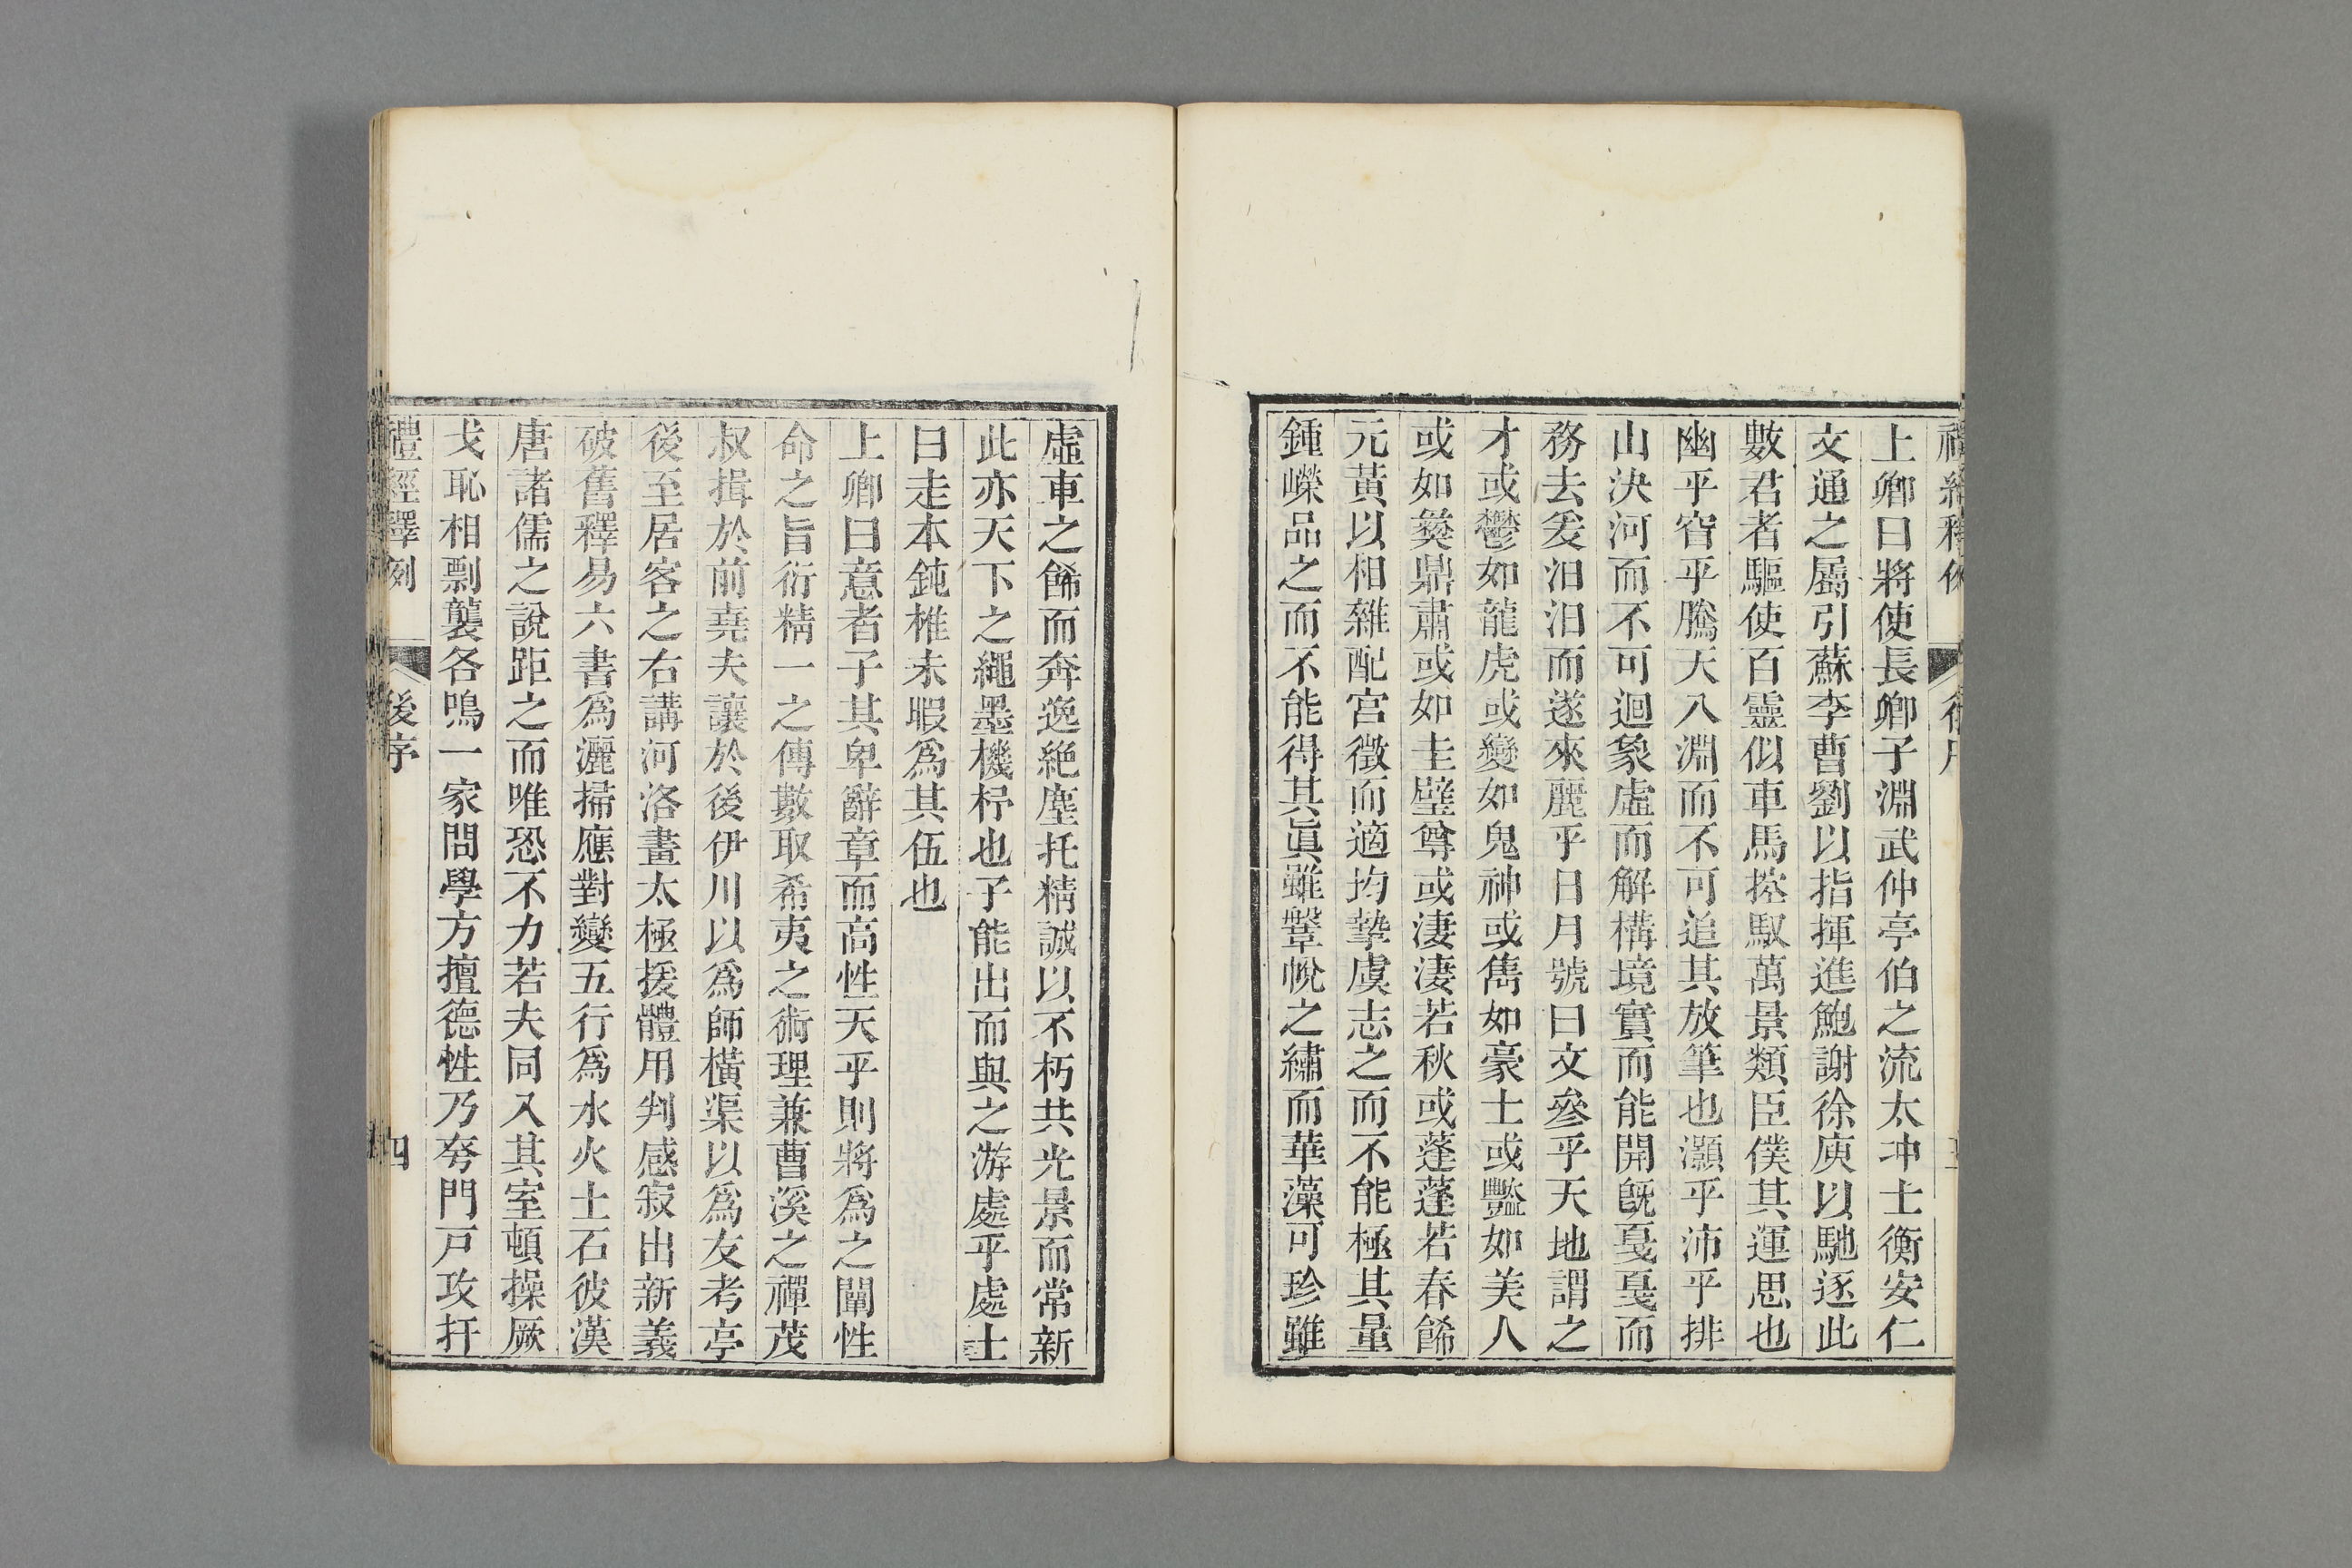 上卿曰將使長卿子淵武仲亭伯之流太冲士衡安仁
文通之屬引蘇李曹劉以指揮進鮑謝徐庾以馳逐此
數君者驅使百靈似車馬控馭萬景類臣僕其運思也
幽乎窅乎騰天入淵而不可追其放筆也灝乎沛乎排
山決河而不可迴象虛而解構境實而能開旣戛戛而
務去爰汩汩而遂來麗乎日月號曰文參乎天地謂之
才或鬱如龍虎或變如鬼神或雋如豪士或豔如美人
或如彝鼎肅或如圭璧尊或淒淒若秋或蓬蓬若春餙
元黃以相雜配宫徵而適均摯虞志之而不能極其量
鍾嶸品之而不能得其眞雖鞶帨之繡而華藻可珍雖
虛車之餙而奔逸絶塵托精誠以不朽共光景而常新
此亦天下之繩墨機杼也子能出而與之游處乎處士
曰走本鈍椎未暇爲其伍也
上卿曰意者子其卑辭章而高性天乎則將爲之闡性
命之旨衍精一之傳數取希夷之術理兼曹溪之禪茂
叔揖於前堯夫讓於後伊川以爲師橫渠以爲友考亭
後至居客之右講河洛畫太極援體用判感寂出新義
破舊釋易六書爲灑掃應對變五行爲水火土石彼漢
唐諸儒之說距之而唯恐不力若夫同入其室頓操厥
戈恥相剽襲各鳴一家問學方擅德性乃夸門戸攻扞
禮經釋例 後序 四